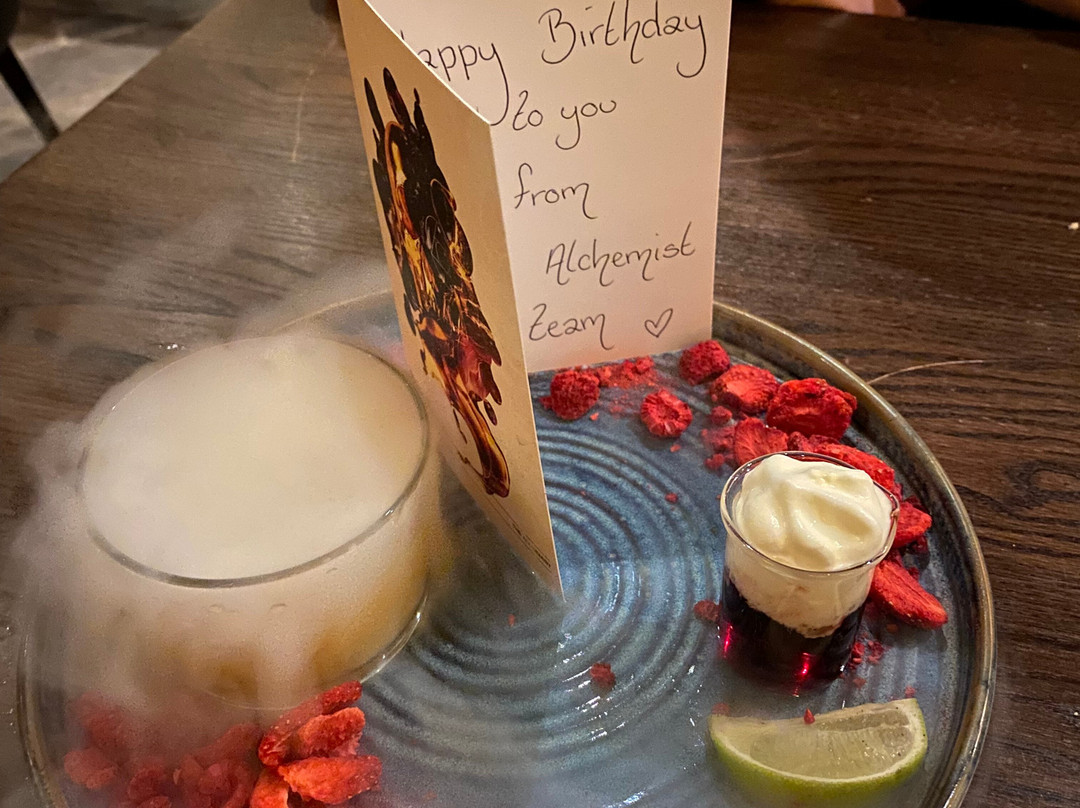 appy Birthday
to you
from
Alchemist
Team ♡